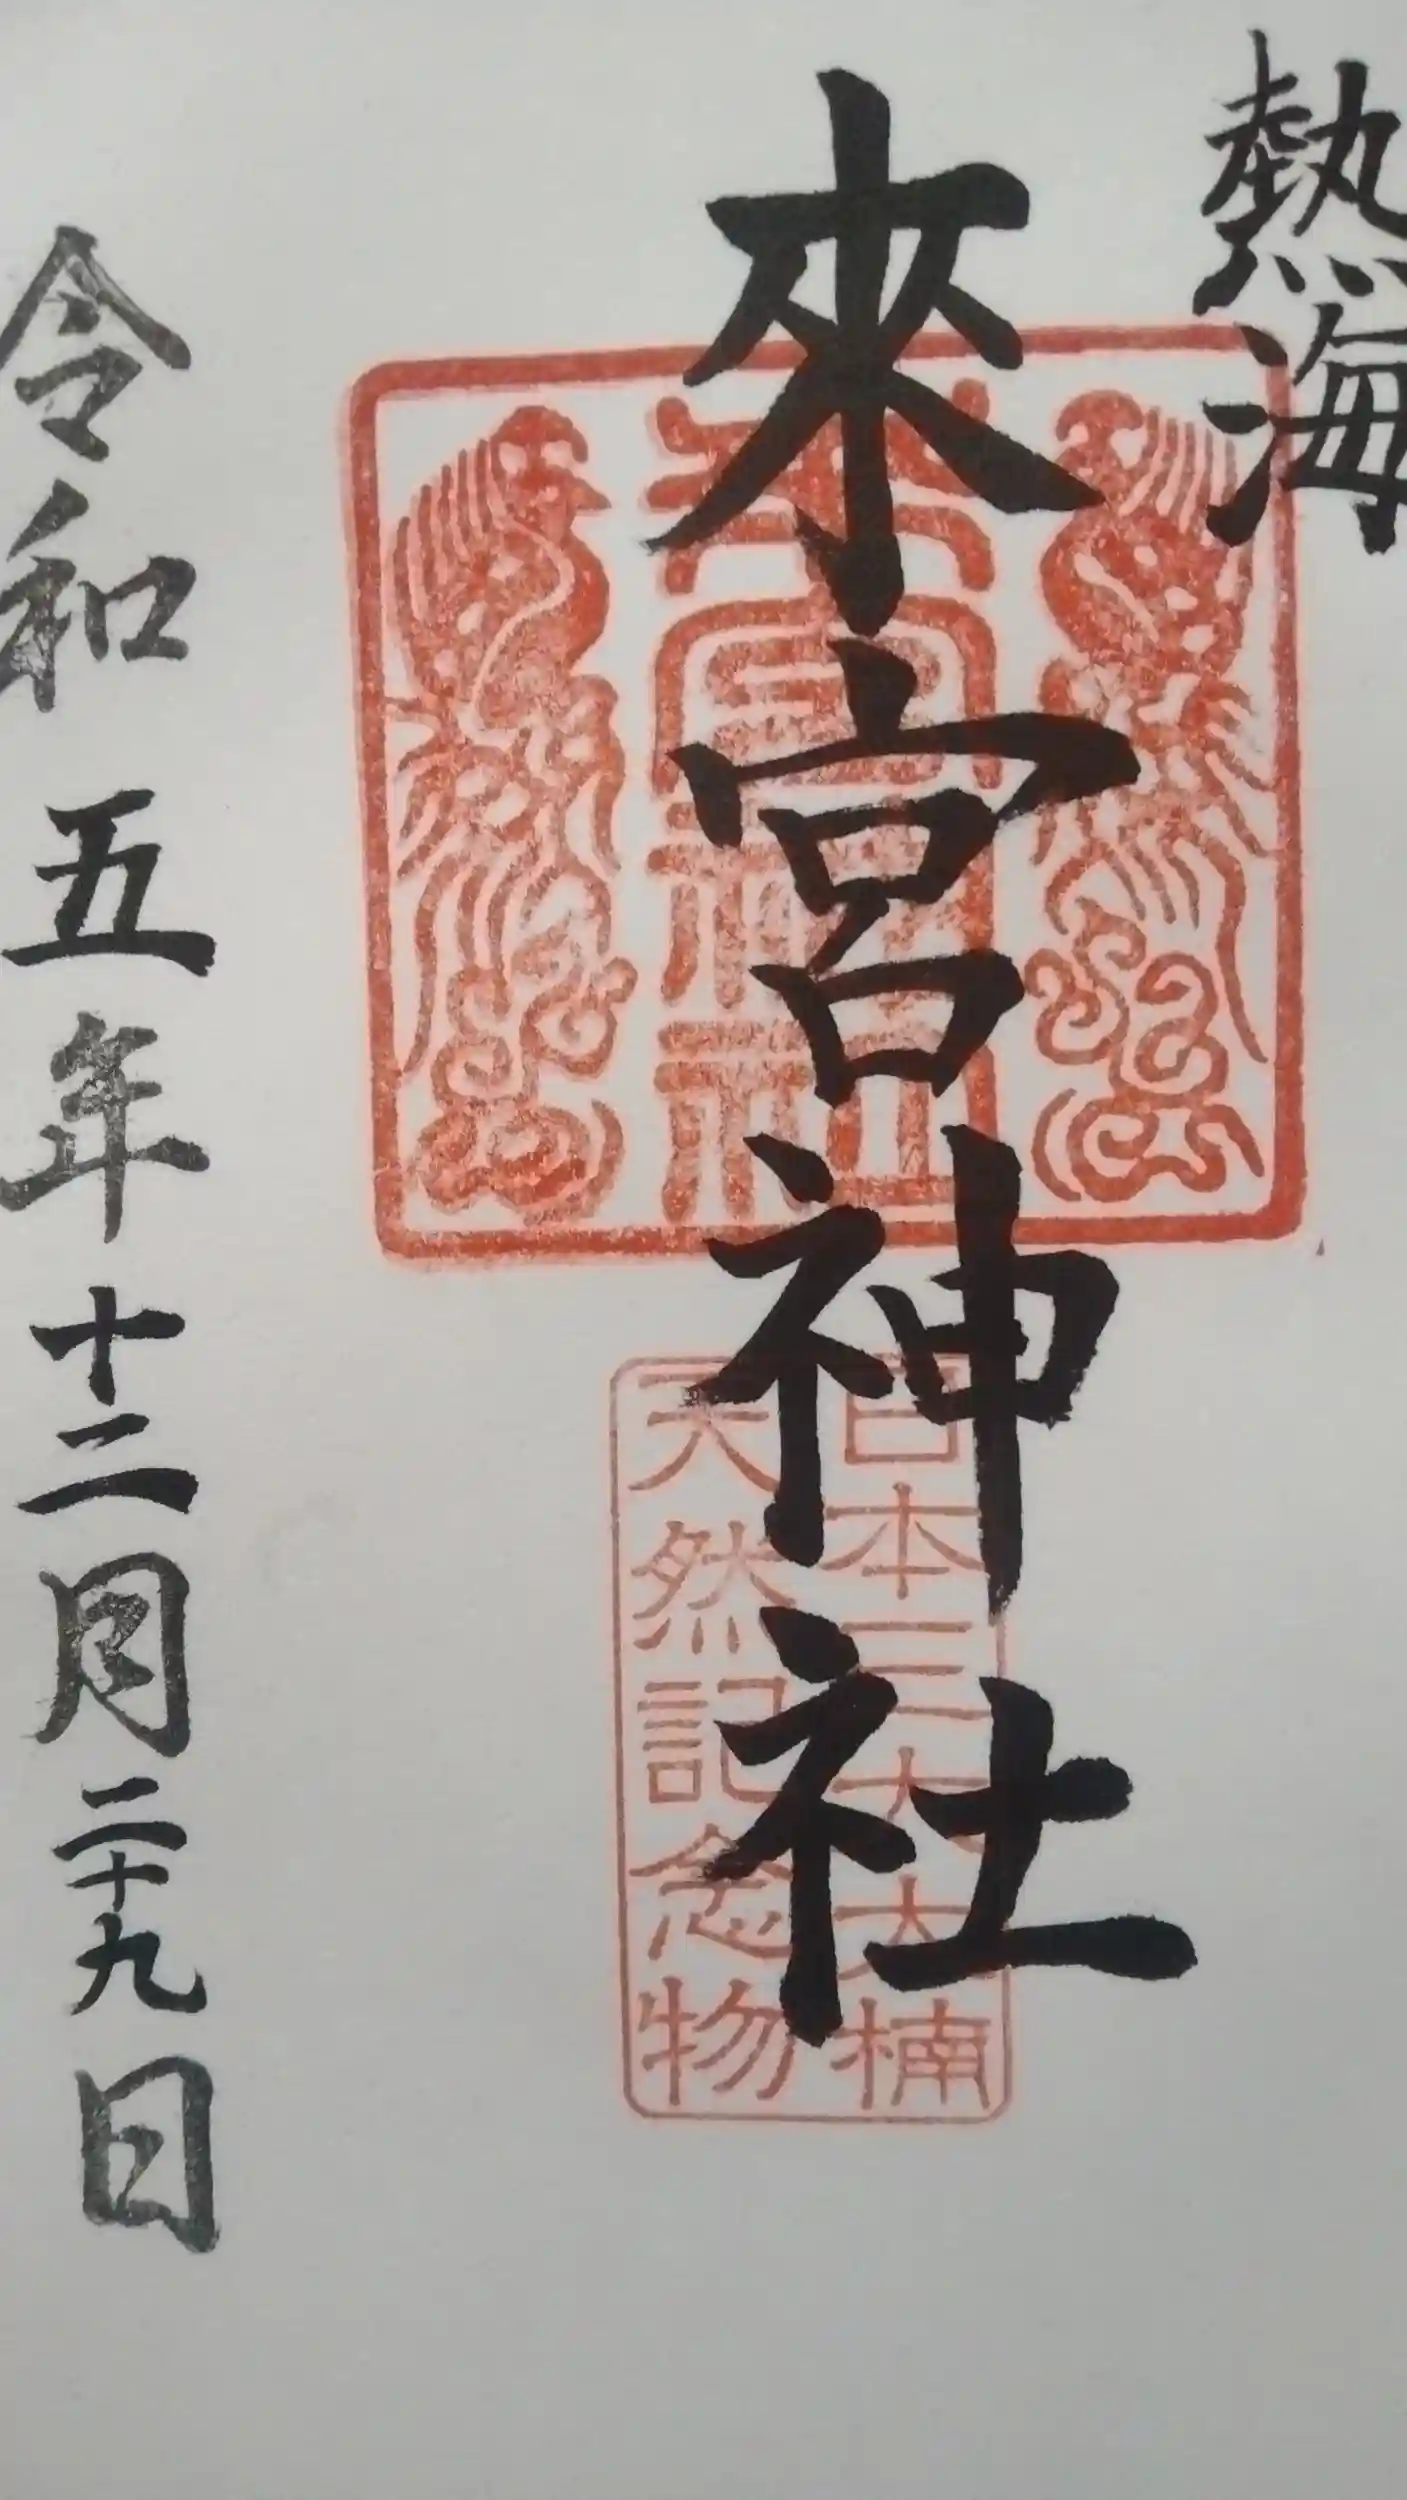 熱海
來宮神社
來宮神社
日本三大大楠
天然記念物
令和五年十二月二十九日